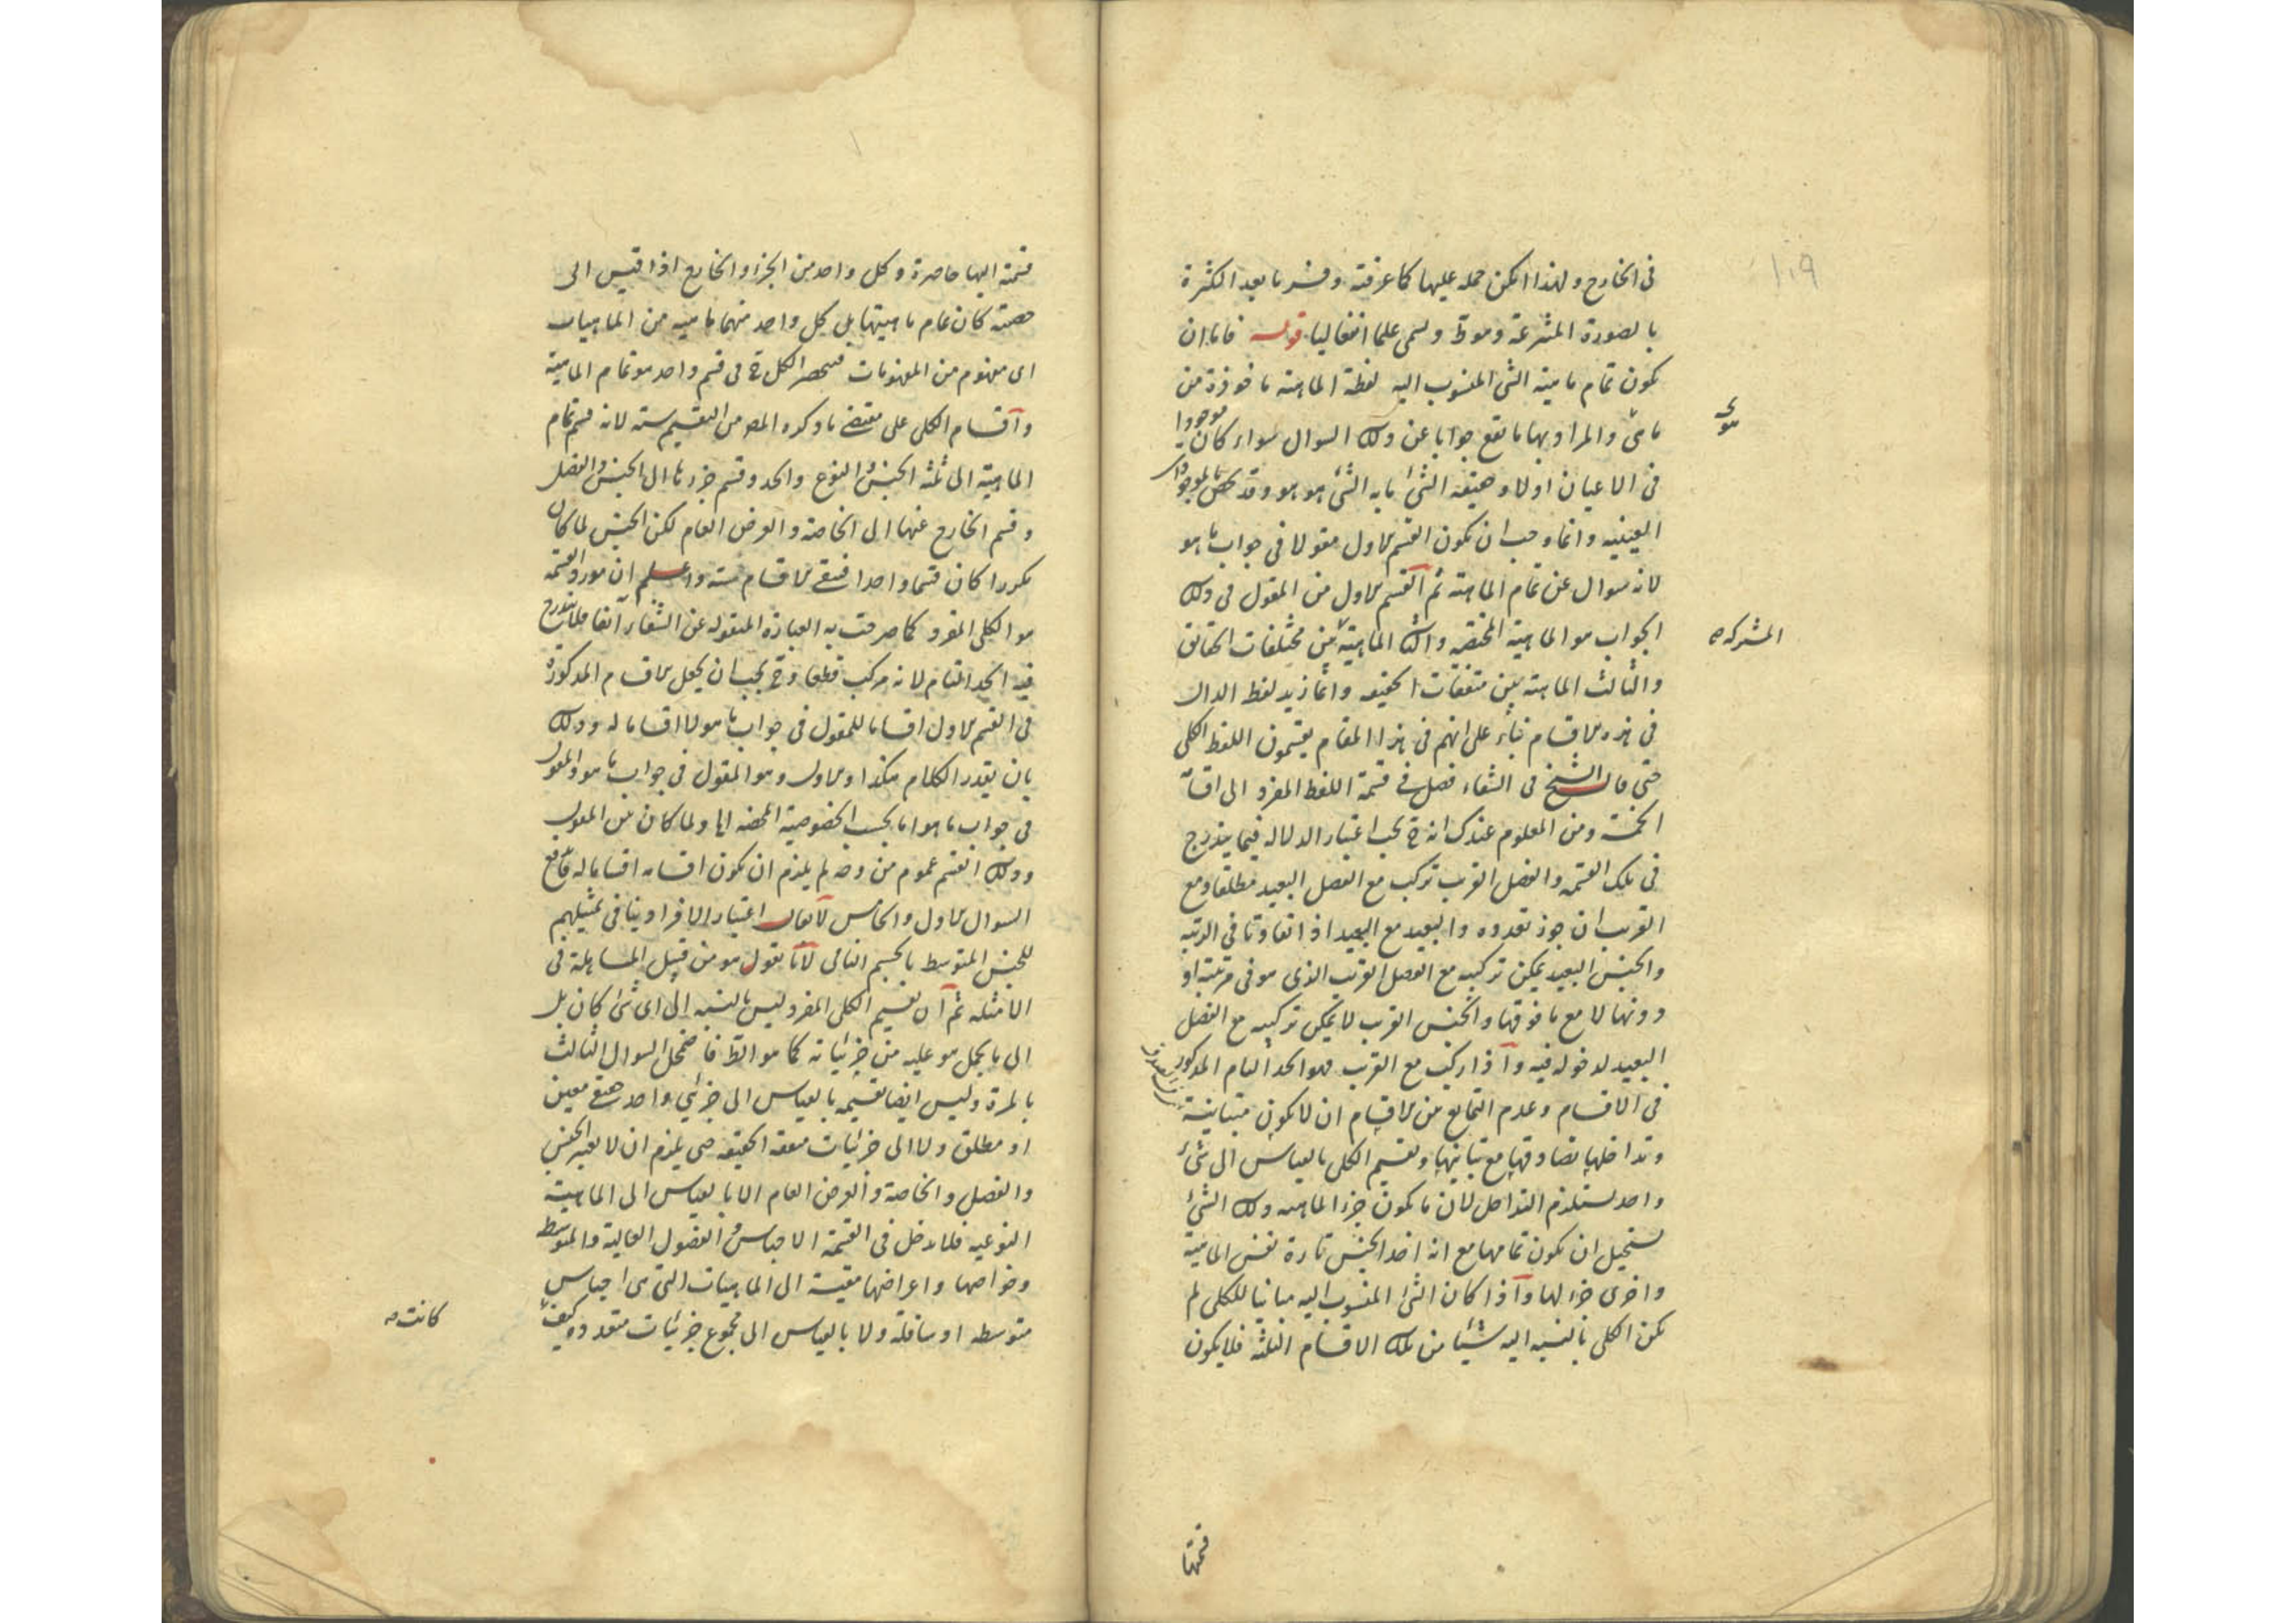 ١٠٩
فى الخارج ولهذا امكن حمله عليها كما عرفته وفسر ما بعد الكثرة
بالصورة المنتزعة وهو ظ ويسمى علما انفعاليا قوله فاما ان
يكون تمام ماهية الشئ المنسوب اليه لفظة الماهية ماخوذة من
ما هى والمراد بها ما يقع جوابا عن ذلك السوال سواء كان موجودا
فى الاعيان اولا وحقيقة الشئ ما به الشئ هو هو وقد يخص بالموجودات
العينيه وانما وجب ان يكون القسم الاول مقولا فى جواب ما هو
لانه سوال عن تمام الماهية ثم القسم الاول من المقول فى ذلك
الجواب هو الماهية المختصة والثانى الماهية بين مختلفات الحقايق
المشتركه
والثالث الماهية بين متفقات الحقيقه وانما زيد لفظ الدال
فى هذه الاقسام بناء على انهم فى هذا المقام يقسمون اللفظ الكلى
حتى قال الشيخ فى الشفاء فصل فى قسمة اللفظ المفرد الى اقسامه
الخمسة ومن المعلوم عندك انه ح يجب اعتبار الدلاله فيما يندرج
فى تلك القسمه والفصل القريب تركب مع الفصل البعيد مطلقا ومع
القريب ان جوز تعدده والبعيد مع البعيد اذا تفاوتا فى الرتبه
والجنس البعيد يمكن تركبه مع الفصل القريب الذى هو فى مرتبته او
دونها لا مع ما فوقها والجنس القريب لا يمكن تركيبه مع الفصل
البعيد لدخوله فيه واذا ركب مع القريب فهو الحد التام المذكور
فى الاقسام وعدم التمايع من الاقسام ان لا يكون متباينة
وتداخلها تصادقها مع تباينها وتقسيم الكلى بالقياس الى شئ
واحد يستلزم التداخل لان ما يكون جزء الماهيه ذلك الشئ
يستحيل ان يكون تمامها مع انه اخذ الجنس تارة نفس الماهية
واخرى جزء لها واذا كان الشئ المنسوب اليه مباينا للكلى لم
يكن الكلى بالنسبه اليه شيئا من تلك الاقسام الثلثة فلا يكون
قسمتها
قسمة اليها حاصرة وكل واحد من الجزء والخارج اذا قيس الى
حصته كان تمام ماهيتها بل كل واحد منهما ماهيه من الماهيات
اى مفهوم من المفهومات فينحصر الكل ح فى قسم واحد هو تمام الماهية
واقسام الكلى على مقتضى ما ذكره المص من التقسيم ستة لانه قسم تمام
الماهية الى ثلثة الجنس والنوع والحد وقسم جزءها الى الجنس والفصل
وقسم الخارج عنها الى الخاصة والعرض العام لكن الجنس لما كان
مكررا كان قسما واحدا فبقى الاقسام ستة واعلم ان مورد القسمة
هو الكلى المفرد كما صرحت به العبارة المنقولة عن الشفاء آنفا فلا يندرج
فيه الحد التام لانه مركب قطعا وح يجب ان يجعل الاقسام المذكورة
فى القسم الاول اقساما للمقول فى جواب ما هو لا اقساما له وذلك
بان يقدر الكلام هكذا والاول وهو المقول فى جواب ما هو والمقول
فى جواب ما هو اما بحسب الخصوصية المحضه الخ ولما كان بين المقول
وذلك القسم عموم من وجه لم يلزم ان يكون اقسامه اقساما له فاندفع
السوال الاول والخامس لا يقال اعتبار الافراد ينافى تمثيلهم
للجنس المتوسط بالجسم النامى لانا نقول هو من قبيل المساهلة فى
الامثله ثم ان تقسيم الكلى المفرد ليس بالنسبه الى اى شئ كان بل
الى ما يحمل هو عليه من جزئياته كما هو الظ فاضمحل السوال الثالث
بالمرة وليس ايضا تقسيمه بالقياس الى جزئى واحد حقيقى معين
او مطلق ولا الى جزئيات متفقه الحقيقه حتى يلزم ان لا يعتبر الجنس
والفصل والخاصة والعرض العام الا بالقياس الى الماهية
النوعيه فلا يدخل فى القسمة الاجناس والفصول العالية والمتوسط
وخواصها واعراضها مقيسة الى الماهيات التى هى اجناس
متوسطه او سافلة ولا بالقياس الى مجموع جزئيات متعدده كيف
كانت